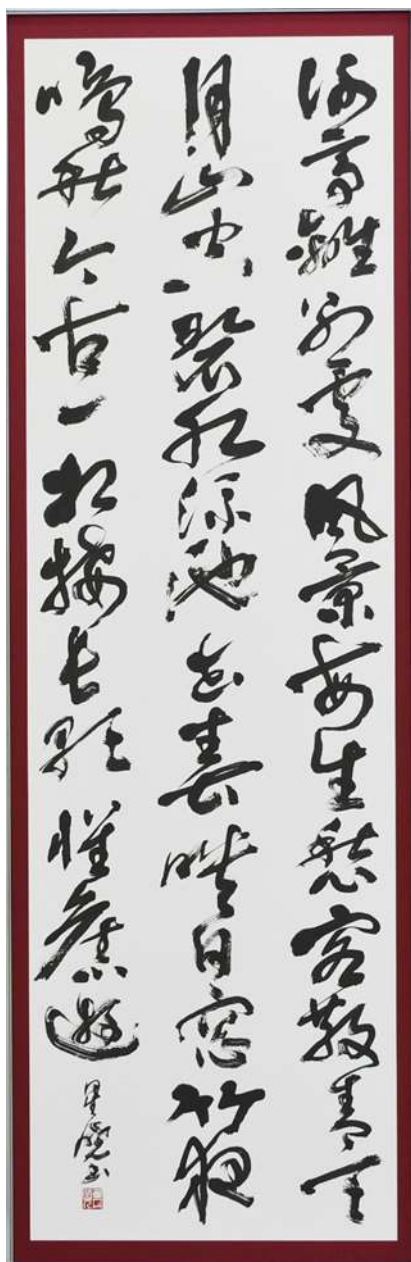 謝亭離別處風景每生愁客散青天
月山空碧水流池花春映日窓竹夜
鳴秋今古一相接長歌懷舊遊